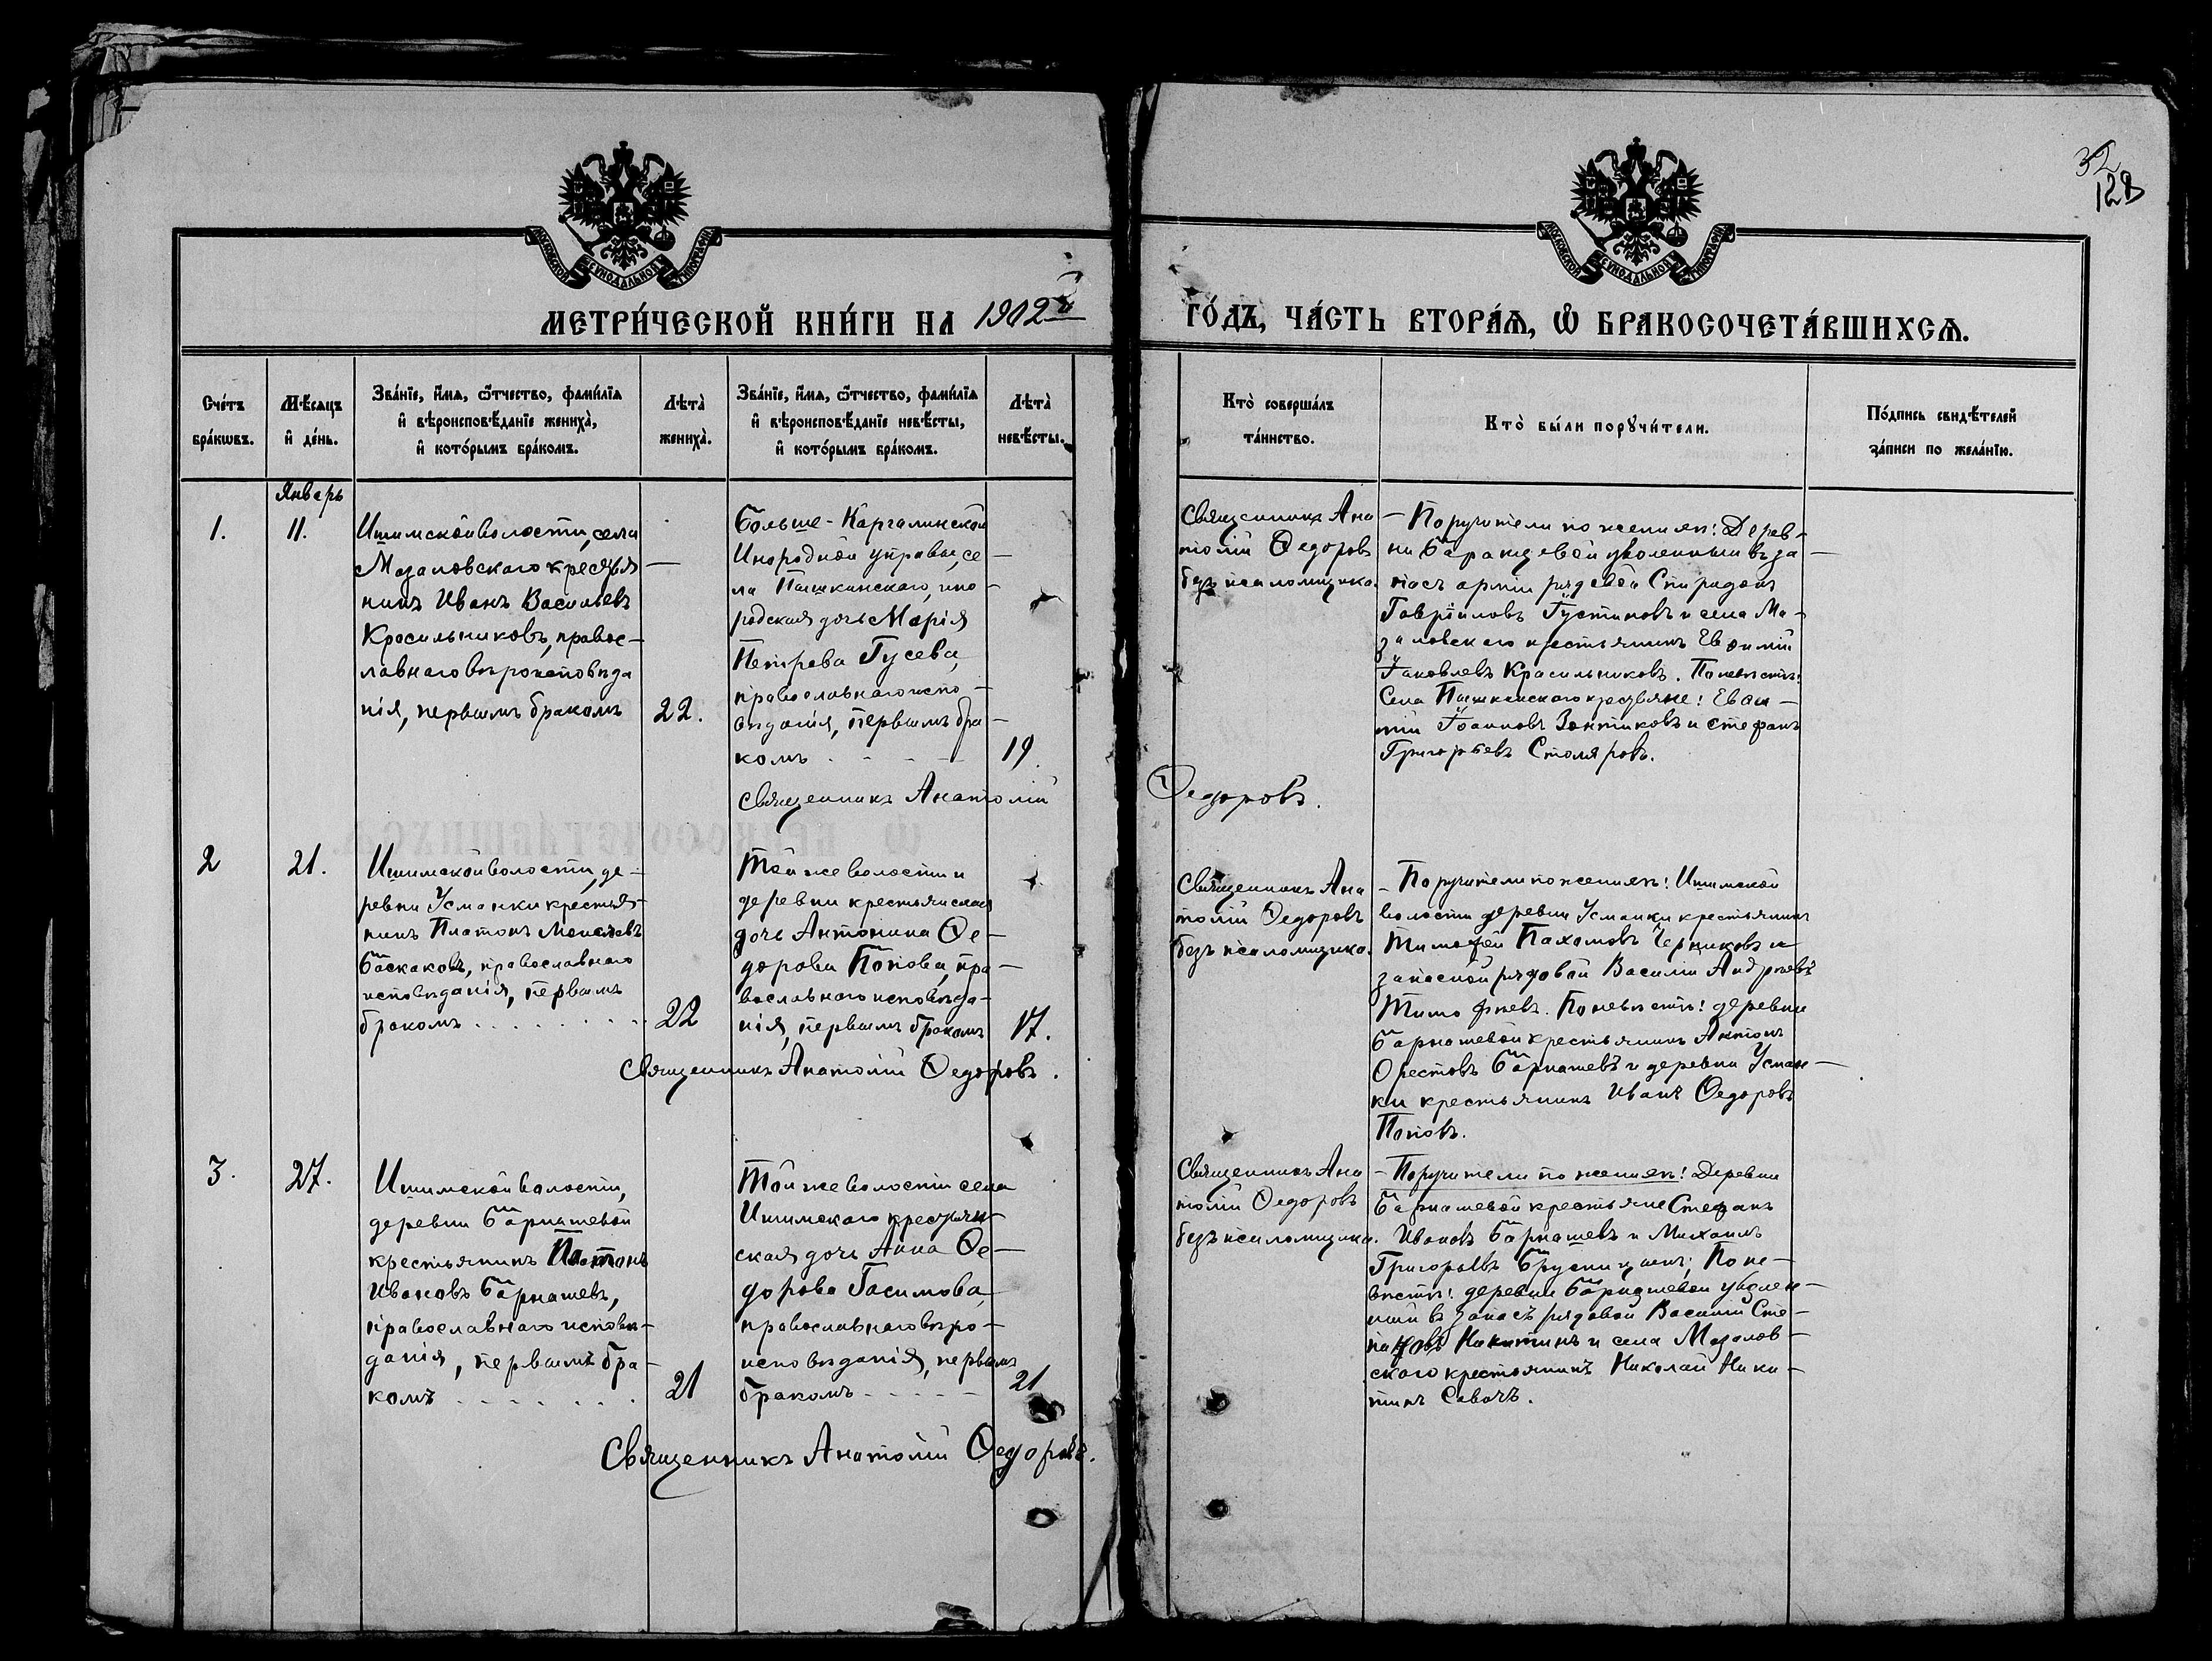 32
128
МОСКОВСКОЙ СѴНОДАЛЬНОЙ ТИПОГРАФІИ
МОСКОВСКОЙ СѴНОДАЛЬНОЙ ТИПОГРАФІИ
МЕТРИ́ЧЕСКОЙ КНИ́ГИ НА 1902й
ГО́ДЪ, ЧА́СТЬ ВТОРА́Ѧ, Ѽ БРАКОСОЧЕТА́ВШИХСѦ.
Сче́тъ
бра́кѡвъ.
Мѣ́сяцъ
и҆ де́нь.
Зва́нїе, и҆́мѧ, ѻ҆́тчество, фами́лїѧ
и҆ вѣроисповѣ́данїе жениха̀,
и҆ кото́рымъ бра́комъ.
Лѣта̀
жениха̀.
Зва́нїе, и҆́мѧ, ѻ҆́тчество, фами́лїѧ
и҆ вѣроисповѣ́данїе невѣ́сты,
и҆ кото́рымъ бра́комъ.
Лѣта̀
невѣ́сты.
Кто̀ соверша́лъ
та́инство.
Кто̀ бы́ли порꙋчи́тели.
По́дпись свидѣ́телей
за́писи по жела́нїю.
Январь
1.
11.
Ишимской волости, села
Мазаловскаго крестья-
нинъ Иванъ Васильевъ
Красильниковъ, правос-
лавнаго вѣроисповѣда
нія, первымъ бракомъ
22.
Больше-Каргалинской
Инородной управы, се-
ла Пашкинскаго, ино-
родская дочь Марія
Петрова Гусева,
православнаго испо-
вѣданія, первымъ бра-
комъ
19.
Священникъ Анатолій
Ѳедоровъ.
Священникъ Ана
толій Ѳедоровъ
безъ псаломщика.
- Поручители по женихѣ: Дерев-
ни Барнашевой уволенный въ за-
пасъ арміи рядовой Спиридонъ
Гавріиловъ Густиновъ и села Ма-
заловскаго крестьянинъ Евѳимій
Іаковлевъ Красильниковъ. По невѣстѣ:
Села Пашкинскаго крестьяне:
Іоанновъ и Стефанъ
Григорьевъ Столяровъ.
2
21.
Ишимской волости, де-
ревни Усманки крестья-
нинъ Платонъ
Баскаковъ, православнаго
исповѣданія, первымъ
бракомъ
22
Той же волости и
деревни крестьянская
дочь Антонина Ѳе-
дорова Попова, пра-
вославнаго исповѣда-
нія, первымъ бракомъ
17.
Священникъ Анатолій Ѳедоровъ.
Священникъ Ана
толій Ѳедоровъ
безъ псаломщика.
- Поручители по женихѣ: Ишимской
волости деревни Усманки крестьянинъ
Тимофей Пахомовъ Черниковъ и
запасной рядовой Василій Андреевъ
Тимофѣевъ. По невѣстѣ: деревни
Барнашевой крестьянинъ Антонъ
Орестовъ Барнашевъ и деревни Усман-
ки крестьянинъ Иванъ Ѳедоровъ
Поповъ.
3.
27.
Ишимской волости,
деревни Барнашевой
крестьянинъ Платонъ
Ивановъ Барнашевъ,
православнаго исповѣ-
данія, первымъ бра-
комъ
21
Той же волости села
Ишимскаго крестьян-
ская дочь Анна Ѳе-
дорова Гасимова,
православнаго вѣро-
исповѣданія, первымъ
бракомъ
21
Священникъ Анатолій Ѳедоровъ.
Священникъ Ана
толій Ѳедоровъ
безъ псаломщика.
- Поручители по женихѣ: Деревни
Барнашевой крестьяне Стефанъ
Ивановъ Барнашевъ и Михаилъ
Григорьевъ Брусницынъ; По не-
вѣстѣ: деревни Барнашевой уволен-
ный въ запасъ рядовой Василій
Никитинъ и села Мазалов-
скаго крестьянинъ Николай Ники-
тинъ Савачъ.